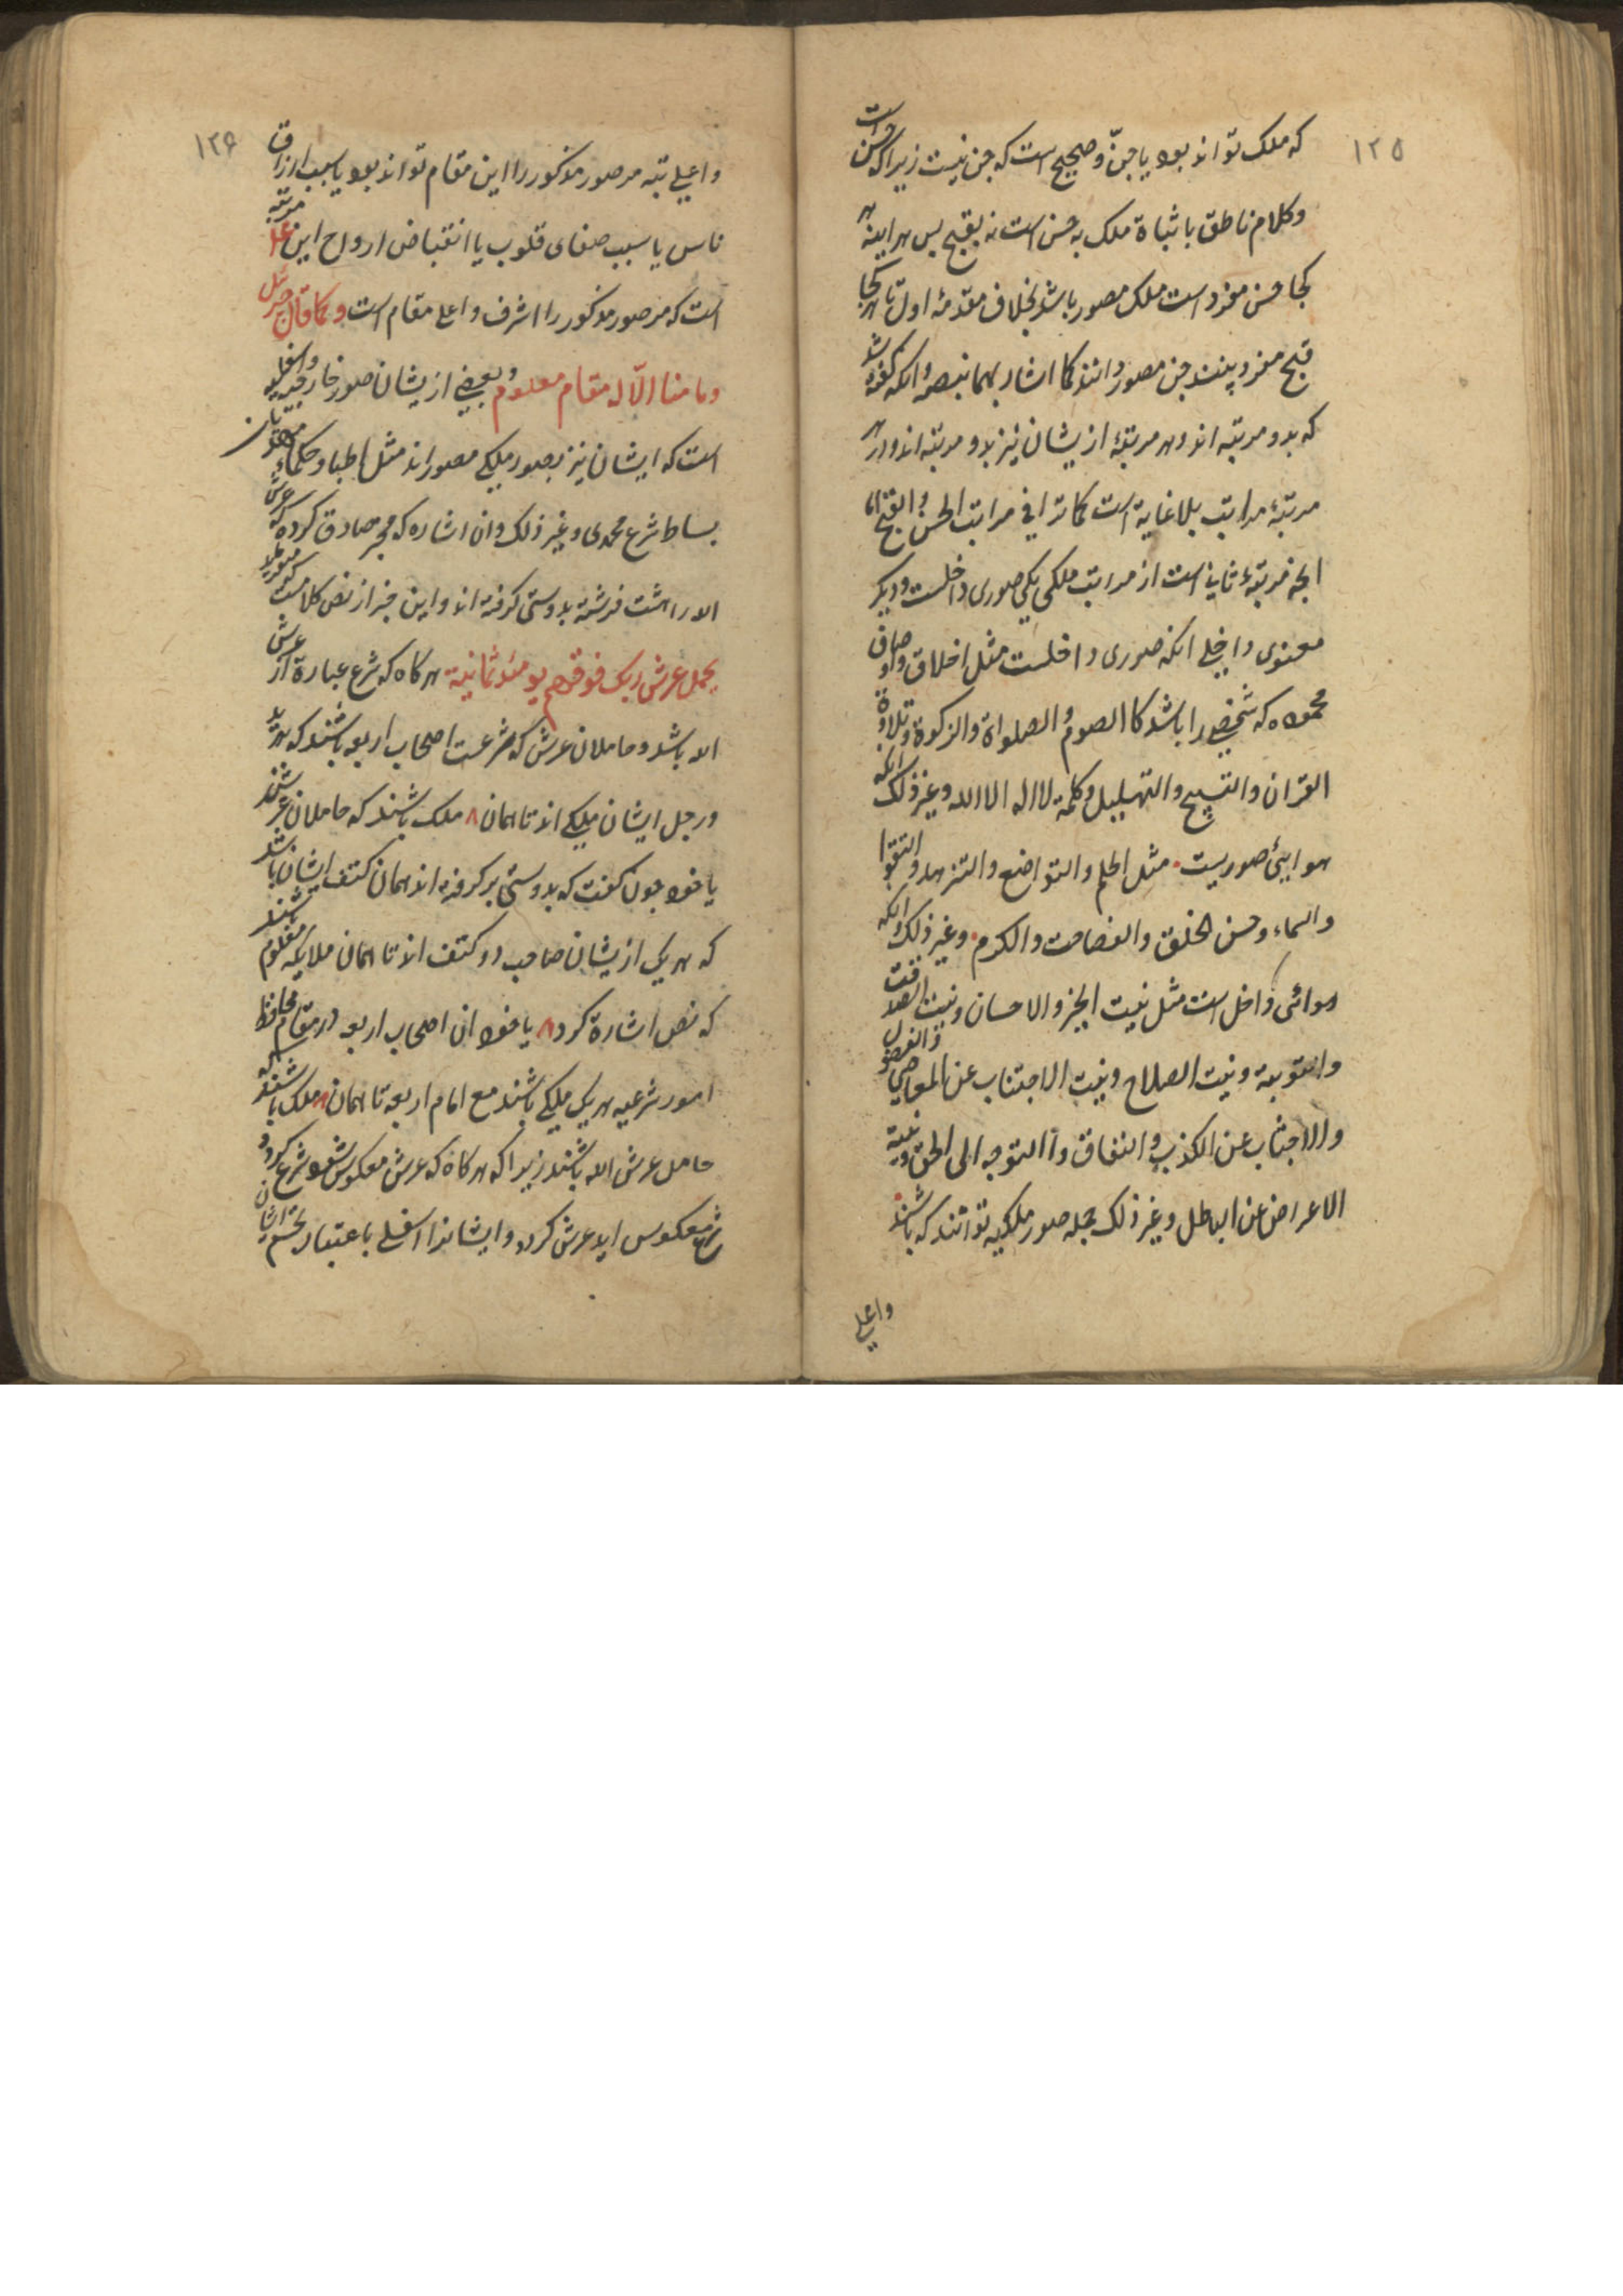 ۱۲۵
که ملک تواند بود یا جن و صحیح است که جن نیست زیرا که حسن است
و کلام ناطق باثباة ملک به حسن است نه بقبح بس هر اینه هر
کجا حسن مفرد است ملک مصور باشد بخلاف مقدمهٔ اول تا هر کجا
قبح مفرد بینند جن مصور دانند کما اشار بهما بنصه و انکه گفته شد
که بدو مرتبه اند و هر مرتبهٔ ازیشان نیز بدو مرتبه اند و در هر
مرتبهٔ مراتب بلا غایة است کما ترا فی مراتب الحسن و القبح اما
انچه مرتبهٔ ثانی است از مراتب ملکی یکی صوری داخلست و دیگر
معنوی داخلی انکه صوری داخلست مثل اخلاق و اوصاف
محموده که شخصی را باشد کا الصوم و الصلواة و الزکوة و تلاوة
القران و التسبیح و التهلیل و کلمة لا اله الا الله و غیر ذلک انکه
هوایئ صوریست مثل الحلم و التواضع و التزهد و التقوا
و السماء و حسن الخلق و الفصاحت و الکرم و غیر ذلک و انکه
هوائی داخل است مثل نیت الخیر و الاحسان و نیت الصداقت
و التوبة و نیت الصلاح و نیت الاجتناب عن المعاصی و الفضول
و الاجتناب عن الکذب و النفاق و االتوجه الی الحق و نیة
الاعراض عن الباطل و غیر ذلک جمله صور ملکیه توانند که باشند
و اعلی
۱۲۶
و اعلی تبه مر صور مذکور را این مقام تواند بود یا سبب ارزاق
ناس یا سبب صفای قلوب یا انقباض ارواح این علا مرتبه
است که مر صور مذکور را اشرف و اعلی مقام است و کما قال جبرئیل
وما منا الا له مقام معلوم و بعضی ازیشان صور خارجیه و اسفلیه
است که ایشان نیز بصور ملیکی مصور اند مثل اطبا و حکماء
بساط شرع محمدی و غیر ذلک و ان اشاره که مخبر صادق کرده که عرش
الله را هشت فرشته بدوستی گرفته اند و این خبر از نص کلامست
یحمل عرش ربک فوقهم یومئذ ثمانیة هر کاه که شرع عبارة از عرش
الله باشد و حاملان عرش که شرعست اصحاب اربعه باشند که هر ید
و رجل ایشان ملیکی اند تا همان ۸ ملک باشند که حاملان عرشند
یا خود جون گفت که بدوستئ بر گرفته اند همان کتف ایشان باشد
که هر یکی ازیشان صاحب دو کتف اند تا همان ملایکه معلوم باشند
که نص اشارة کرد ۸ یا خود ان اصحاب اربعه در مقام محافظ
امور شرعیه هر یکی ملیکی باشند مع امام اربعه تا همان ۸ ملک باشند که
حامل عرش الله باشند زیرا که هر کاه که عرش معکوس شود شرع گردد
شرع معکوس اید عرش گردد و ایشانرا اسفلی باعتبار تجسم ایشان